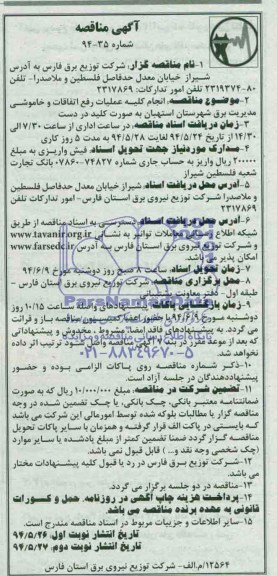 آگهی مناقصه
شماره ۳۵-۹۴
۱-نام مناقصه گزار: شرکت توزیع برق فارس به آدرس
شیراز خیابان معدل حدفاصل فلسطین و ملاصدرا- تلفن
۸۰-۲۳۱۹۳۷۴ تلفن امور تدارکات: ۲۳۱۷۸۶۹
۲-موضوع مناقصه: انجام کلیه عملیات رفع اتفاقات و خاموشی
مدیریت برق شهرستان استهبان به صورت کلید در دست
۳-زمان دریافت اسناد مناقصه: در ساعت اداری از ساعت ۷/۳۰ الی
۱۴/۳۰ از تاریخ ۹۴/۵/۲۴ لغایت ۹۴/۵/۲۸ به مدت ۵ روز کاری
۴-مدارک مورد نیاز جهت دریافت اسناد: فیش واریزی به مبلغ
۲۰۰۰۰۰ ریال واریز به حساب جاری شماره ۰۷۸۶۰۰۷۴۸۲۷ بانک تجارت
شعبه فلسطین شیراز
۵-آدرس محل دریافت اسناد: شیراز خیابان معدل حدفاصل فلسطین
و ملاصدرا شرکت توزیع نیروی برق فارس- امور تدارکات تلفن
۲۳۱۷۸۶۹
۶-آدرس محل دریافت اسناد: دسترسی به اسناد مناقصه از طریق
شبکه اطلاع رسانی معاملات توانیر به نشانی www.tavanir.org.ir
و شرکت توزیع نیروی برق استان فارس به آدرس www.farsedc.ir
امکان پذیر می باشد.
۷-زمان تحویل اسناد: ساعت ۸ صبح روز دوشنبه مورخ ۹۴/۶/۹
۸-محل برگزاری مناقصه: شرکت توزیع نیروی برق استان فارس -
طبقه اول - دفتر معاونت
۹-زمان بازگشایی پاکات: ساعت ۱۰/۱۵ روز
دوشنبه مورخ ۹۴/۶/۹ با حضور اعضا کمیسیون مناقصه باز و قرائت
می گردد. به پیشنهادهای فاقد امضا، مشروط، مخدوش و پیشنهاداتی
که بعد از موعد مقرر در بند ۷ آگهی مناقصه واصل شود ترتیب اثر داده
نخواهد شد.
۱۰-ذکر شماره مناقصه روی پاکات الزامی بوده و حضور
پیشنهاددهندگان در جلسه آزاد است.
۱۱-تضمین شرکت در مناقصه: مبلغ ۱۰/۰۰۰/۰۰۰ ریال که به صورت
ضمانتنامه معتبر بانکی، چک بانکی، یا چک تضمین شده در وجه
مناقصه گزار یا مطالبات بلوکه شده توسط امورمالی این شرکت می باشد
که بایستی در پاکت الف قرار گرفته و همزمان با سایر پاکات تحویل
مناقصه گزار گردد ضمنا تضمین کمتر از مبلغ یادشده یا سایر موارد
(چک شخصی وجه نقد و... ) قابل قبول نمی باشد.
۱۲-شرکت توزیع برق فارس در رد یا قبول کلیه پیشنهادات مختار
می باشد.
۱۳-مناقصه در دو جلسه برگزار می گردد.
۱۴-پرداخت هزینه چاپ آگهی در روزنامه، حمل و کسورات
قانونی به عهده برنده مناقصه می باشد.
۱۵-سایر اطلاعات و جزییات مربوط در اسناد مناقصه مندرج است.
تاریخ انتشار نوبت اول: ۹۴/۵/۲۶
تاریخ انتشار نوبت دوم: ۹۴/۵/۲۷
۱۲۵۶۴/م.الف- شرکت توزیع نیروی برق استان فارس
ParsNamad
۰۲۱-۸۸۳۴۹۶۷۰-۵